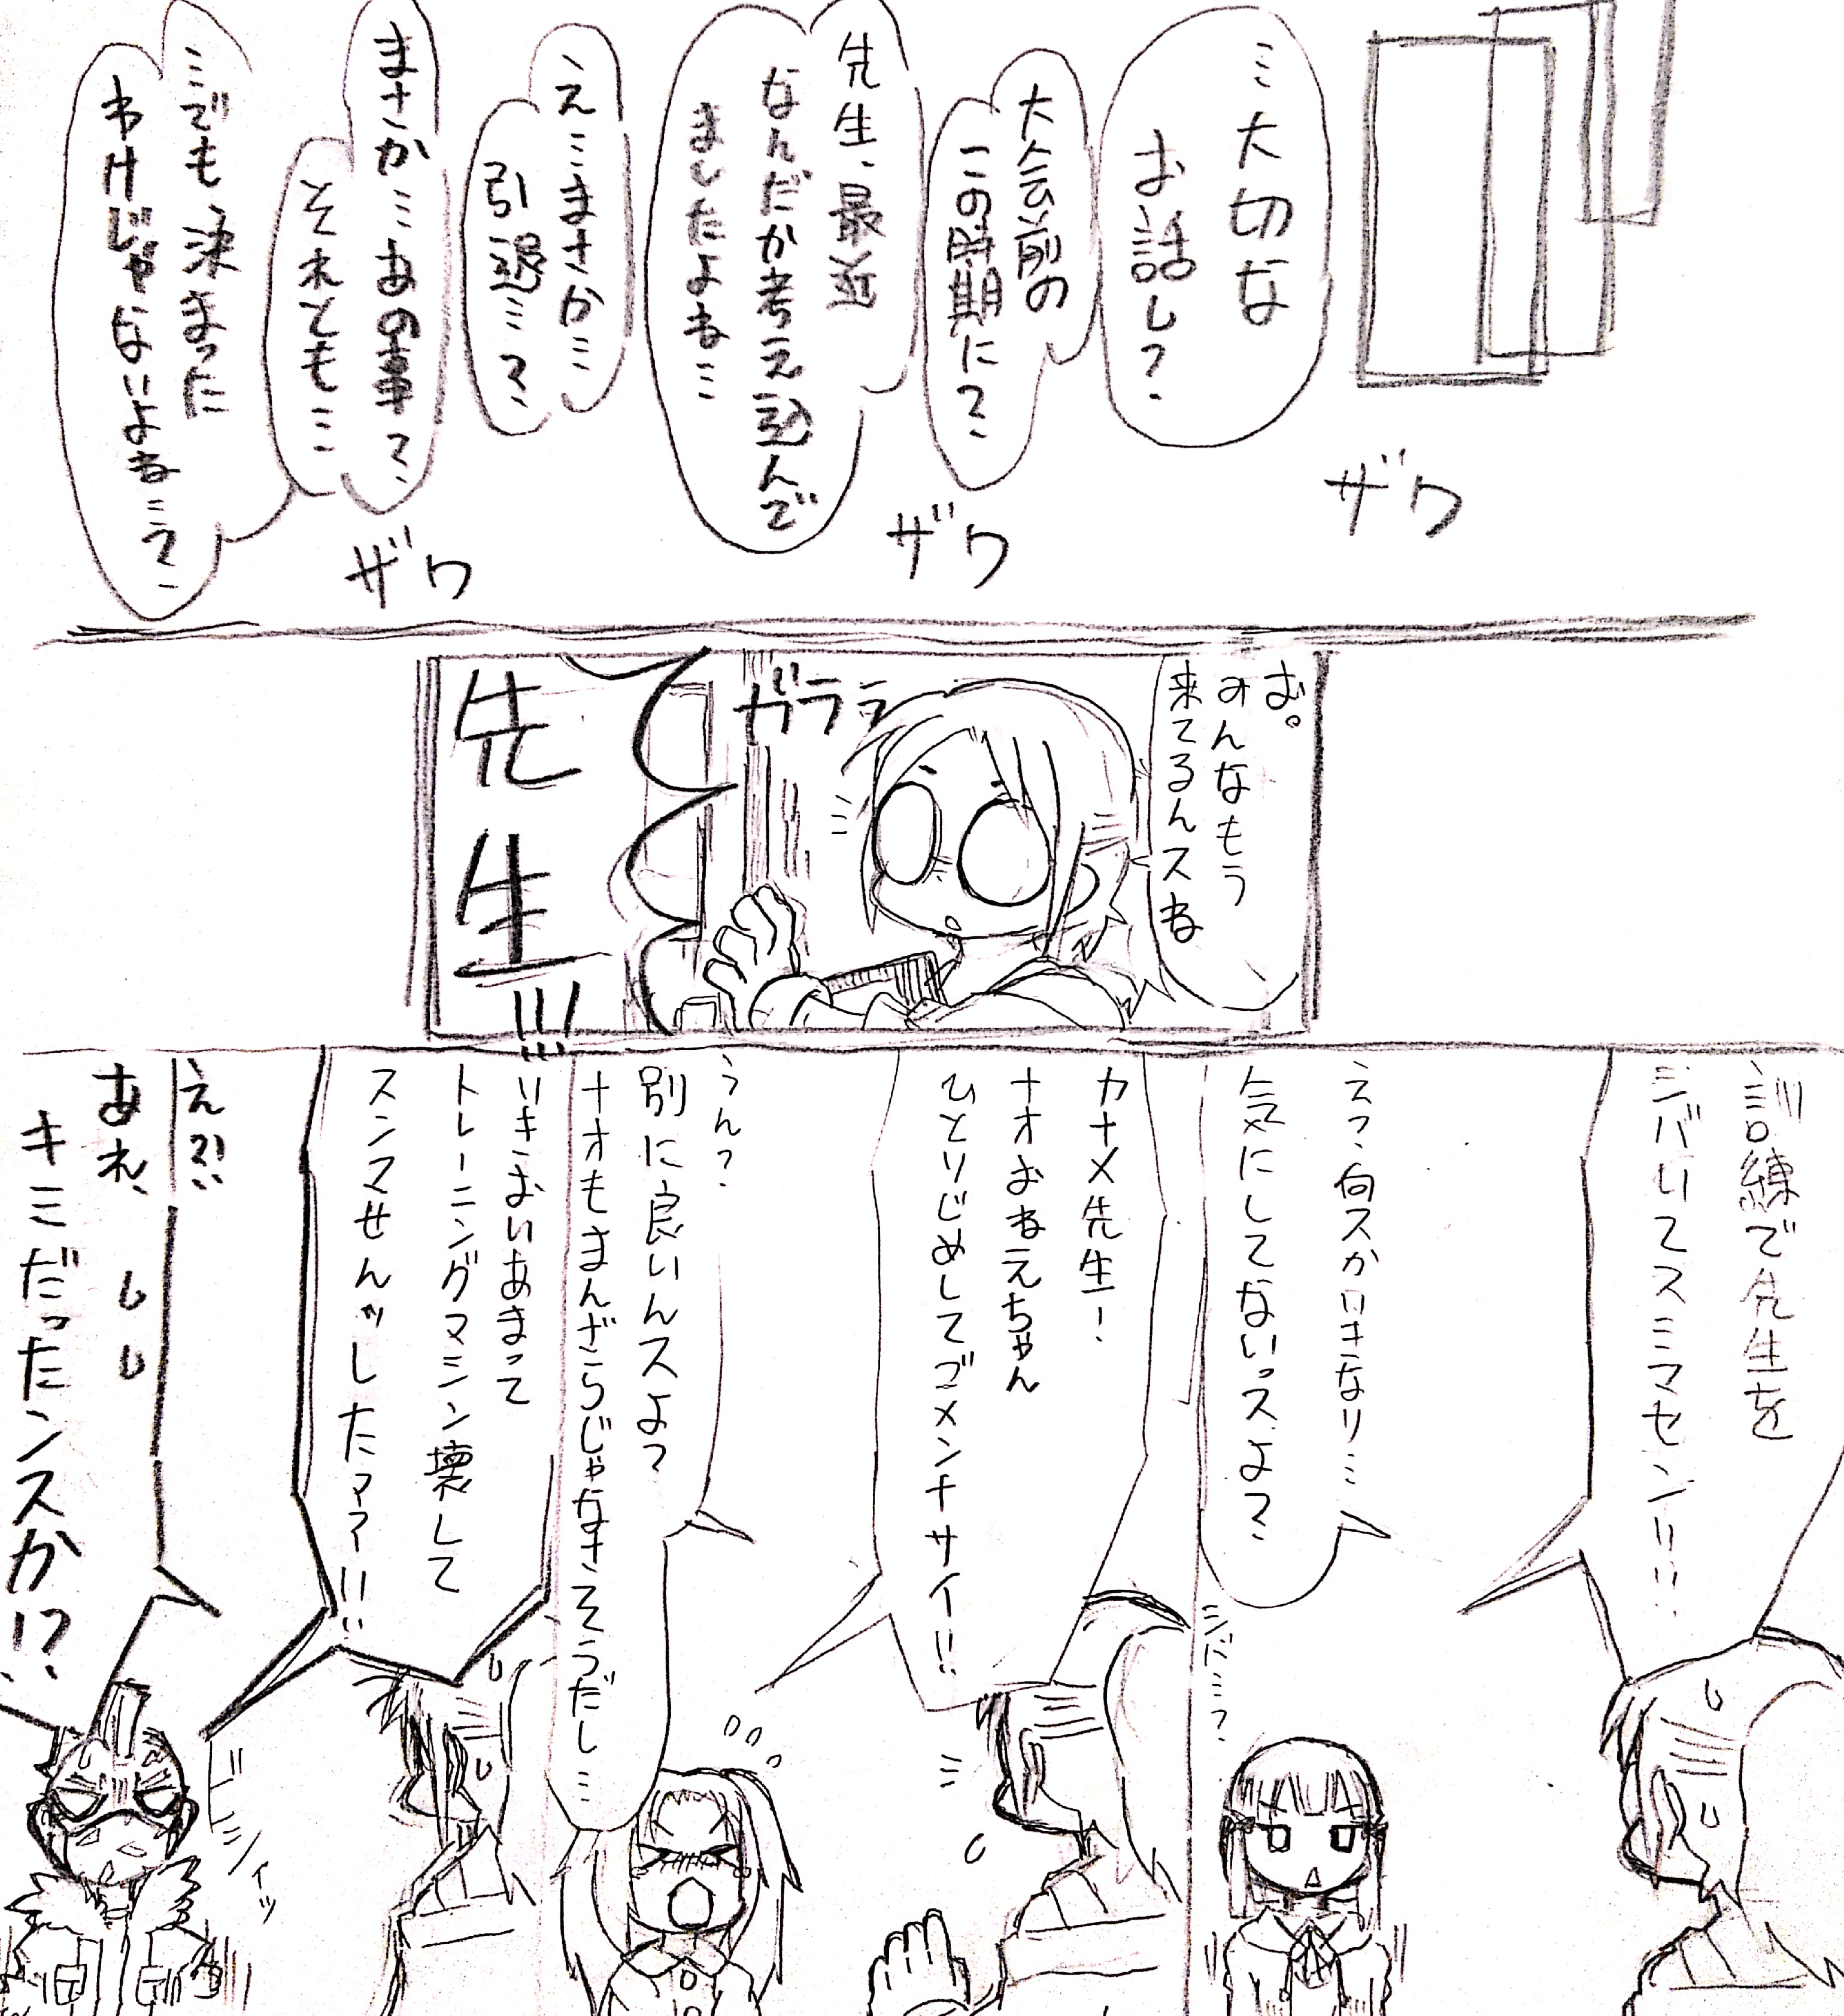 …大切な
お話し?
大会前の
この時期に?
先生、最近
なんだか考え込んで
ましたよね…
え…まさか…
引退…?
まさか…あの事?
それとも…
…でも、決まった
わけじゃないよね…?
ザワ
ザワ
ザワ
お。
みんなもう
来てるんスね
ガララ
先生!!!
訓練で先生を
シバいてスミマセン!!!
えっ、何スかいきなり…
気にしてないっスよ?
シバ…?
カナメ先生!
ナオおねえちゃん
ひとりじめしてゴメンナサイ!!
うん?
別に良いんスよ?
ナオもまんざらじゃなさそうだし…
いきおいあまって
トレーニングマシン壊して
スンマせんッしたァァ!!!
ビシィッ
え?!
あれ、
キミだったンスか!?